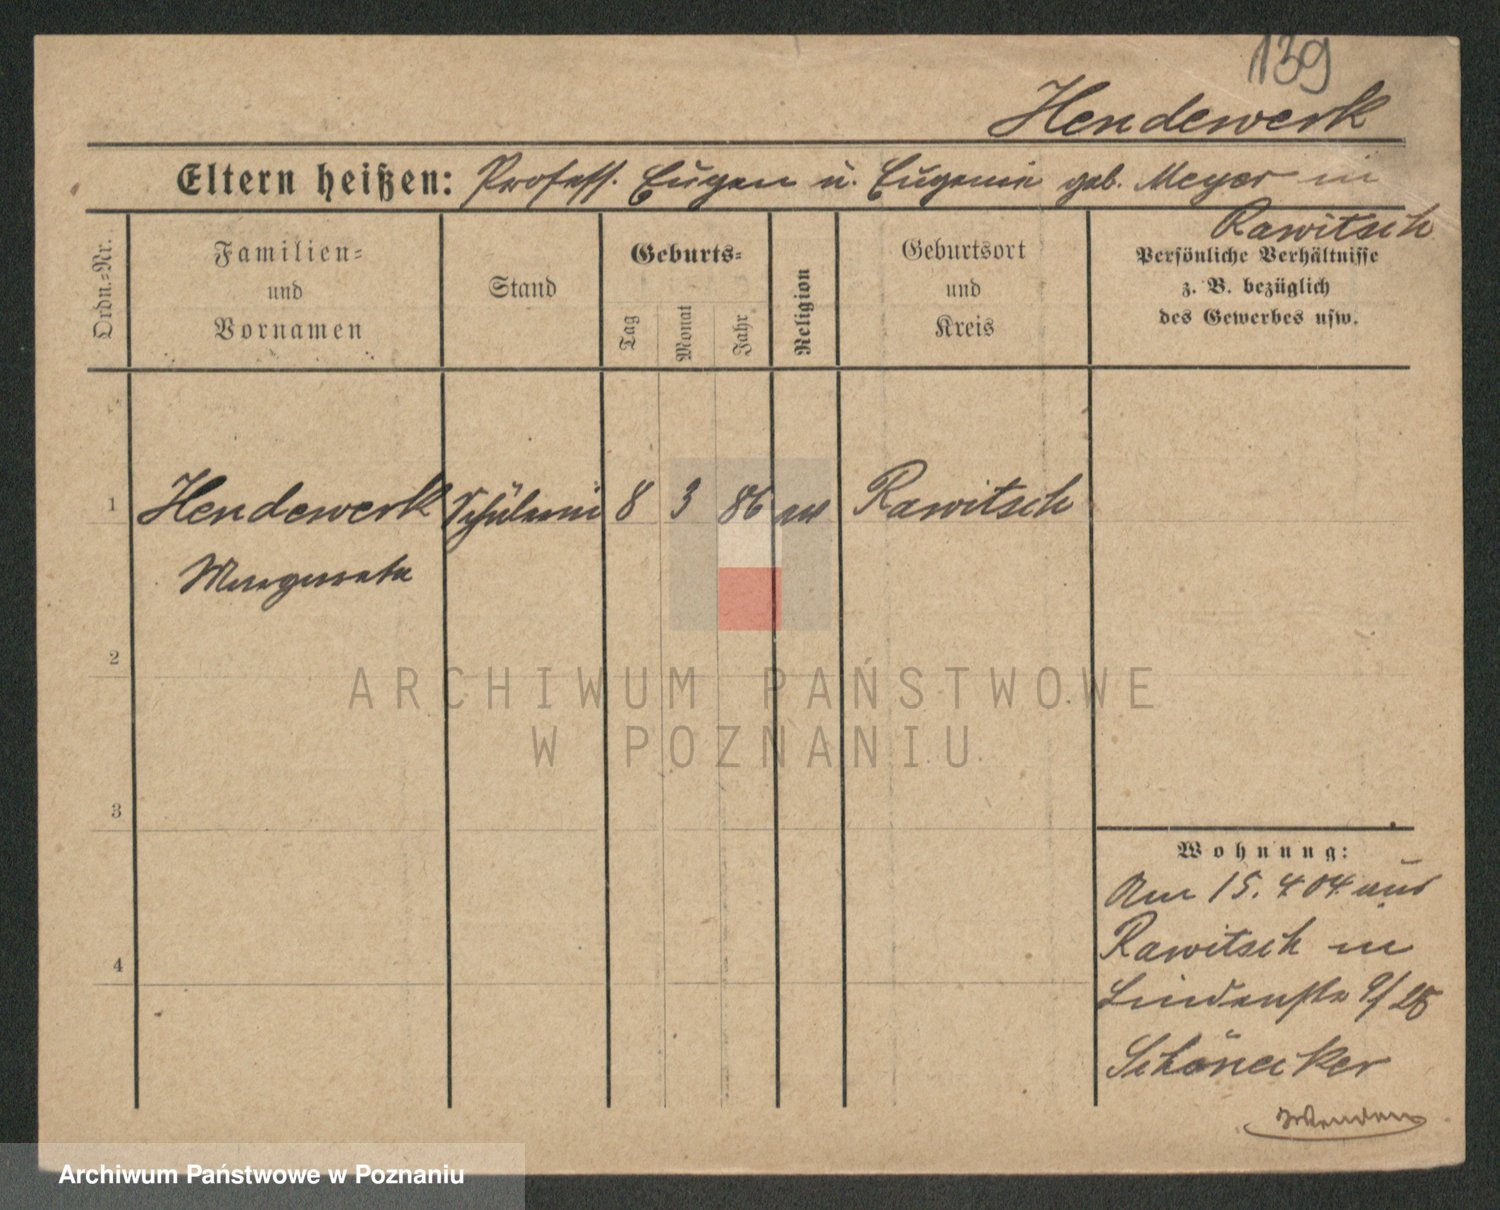 139
Hendewerk
Eltern heißen: Profess. Eugen u. Eugenie geb. Meyer in
Rawitsch
Ordn.=Nr.
Familien=
und
Vornamen
Stand
Geburts=
Tag
Monat
Jahr
Religion
Geburtsort
und
Kreis
Persönliche Verhältnisse
z. B. bezüglich
des Gewerbes usw.
1 Hendewerk Schülerin 8 3 86 ev Rawitsch
Margareta
2
3
4
Wohnung:
Am 15. 4 04 aus
Rawitsch in
Lindenstr 9/
Schönecker
Wenden
ARCHIWUM PAŃSTWOWE
W POZNANIU
Archiwum Państwowe w Poznaniu